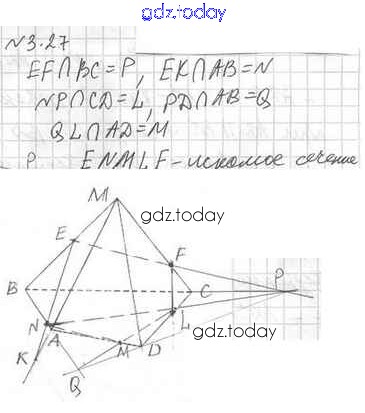 gdz.today
№3.27
EF∩BC=P, EK∩AB=N
NP∩CD=L, PD∩AB=Q
QL∩AD=M
P ENMLF-искомое сечение
M
gdz.today
E
F
B
C
P
N
A
L
gdz.today
K
M
D
Q